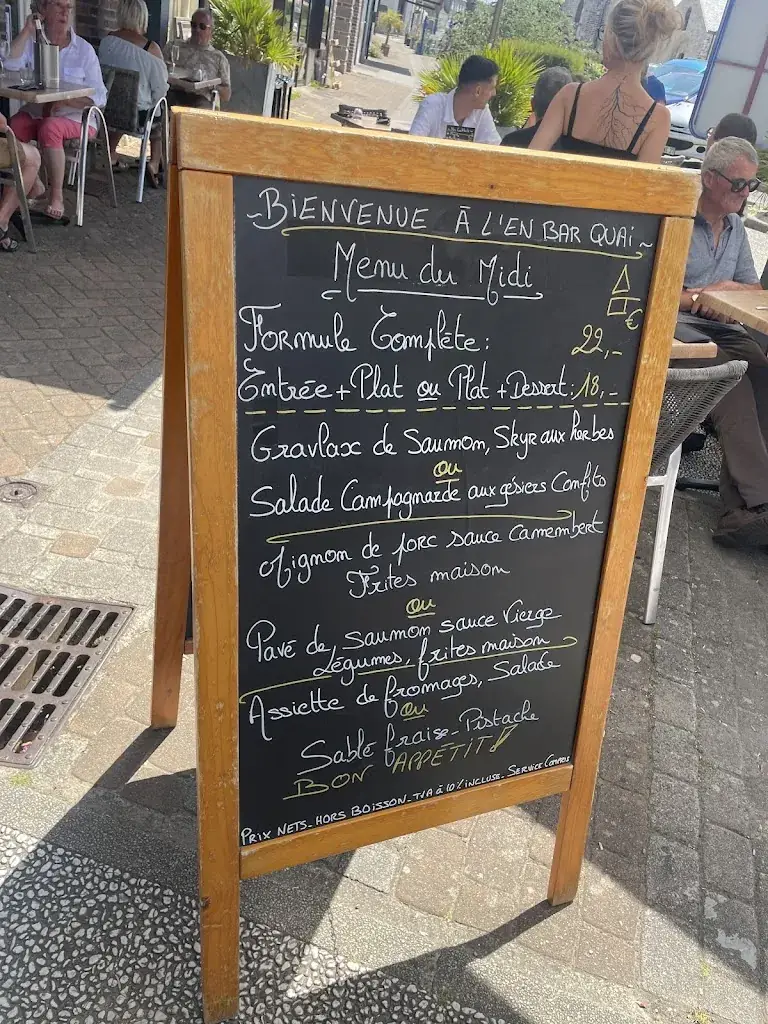 ~BIENVENUE À L'EN BAR QUAI~
Menu du Midi
€
Formule Complète: 22,-
Entrée + Plat ou Plat + Dessert: 18,-
Gravlax de Saumon, Skyr aux herbes
ou
Salade Campagnarde aux gésiers Confits
Mignon de porc sauce Camembert
Frites maison
ou
Pavé de saumon sauce Vierge
Légumes, frites maison
Assiette de fromages, Salade
ou
Sablé fraise-Pistache
BON APPÉTIT!
PRIX NETS-HORS BOISSON-TVA à 10% INCLUSE-SERVICE COMPRIS